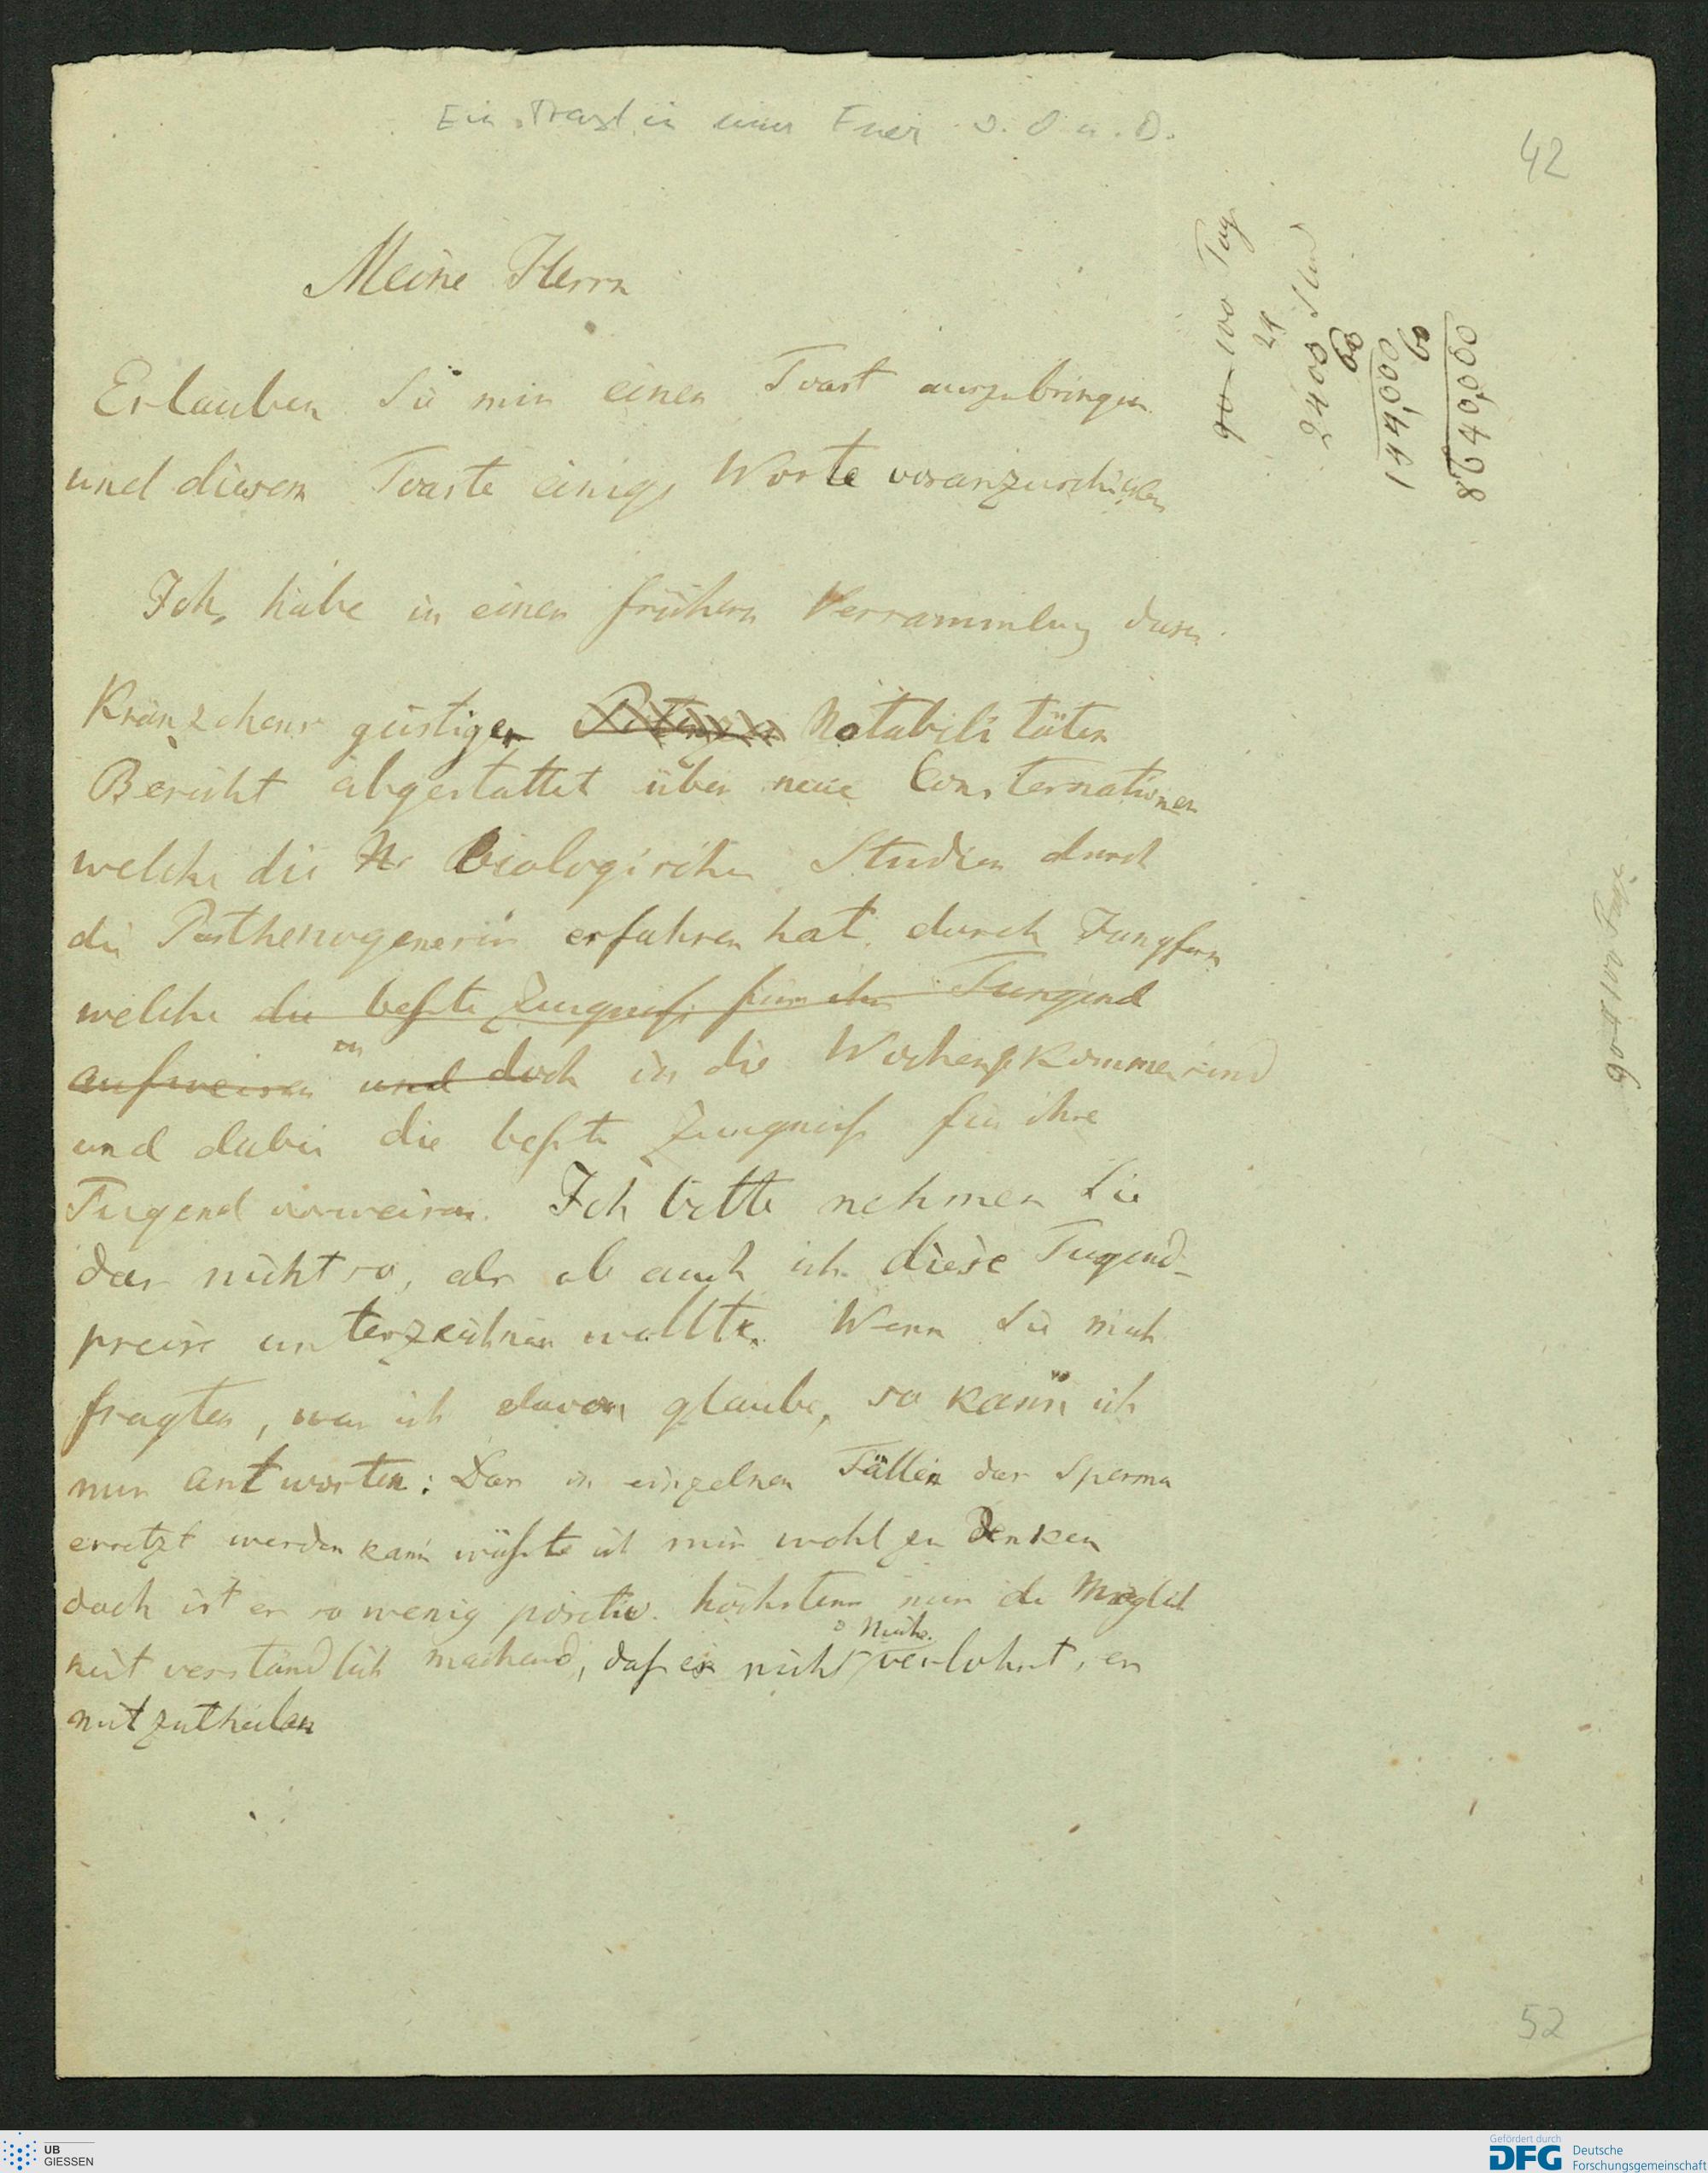 Ein Toast in einer Feier v. O u. D.
42
Meine Herrn
Erlauben Sie mir einen Toast auszubringen
und diesem Toaste einige Worte voranzuschicken
Ich habe in einer frühern Versammlung dieses
Kränzchens geistiger Notabilitäten
Bericht abgestattet über neue Consternationen
welche die Nr biologischen Studien durch
die Parthenogenesis erfahren hat. durch Jungfern
welche die beßte Zeugniß für ihr Tungend
aufweisen und doch in die Wochen kommen sind
und dabei die beßte Zeugniß für ihre
Tugend vorweisen. Ich bitte nehmen Sie
das nicht so, als ob auch ich diese Tugend-
preise unterzeichnen wollte. Wenn Sie mich
fragten, was ich davon glaube, so kann ich
nur antworten: Das in einzelnen Fällen das Sperma
ersetzt werden kann wüßte ich mir wohl zu Denken
doch ist es so wenig positiv. höchstens nur die Möglich
keit verständlich machend, daß es nicht d Mühe verlohnt, es
mitzutheilen
90 - 100 Tag
24
2400 Stund
60
144,000
60
8640,000
90 - 100 Tage
52
UB
GIESSEN
Gefördert durch
DFG Deutsche
Forschungsgemeinschaft